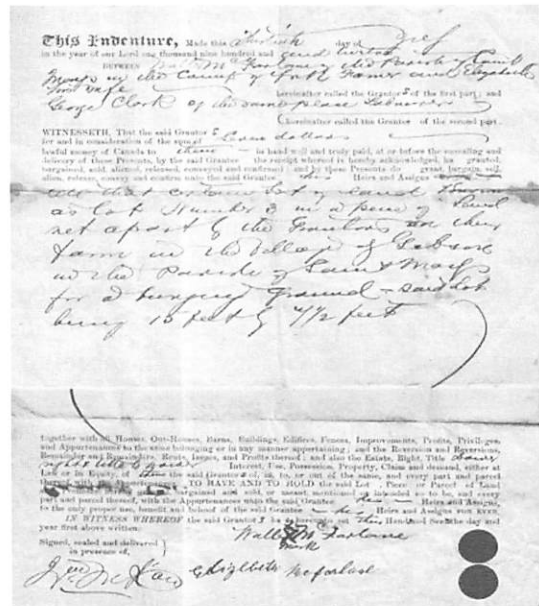 This Indenture, Made this day of
in the year of our Lord one thousand nine hundred and
BETWEEN of the Parish of Saint
Marys in the County of York Farmer and Elizabeth
his wife hereinafter called the Grantors of the first part; and
George Clark of the same place Labourer
hereinafter called the Grantee of the second part.
WITNESSETH, That the said Grantors
for and in consideration of the sum of Seven dollars
lawful money of Canada to them in hand well and truly paid, at or before the ensealing and
delivery of these Presents, by the said Grantee the receipt whereof is hereby acknowledged, ha granted,
bargained, sold, aliened, released, conveyed and confirmed; and by these Presents do grant, bargain, sell,
alien, release, convey and confirm unto the said Grantee his Heirs and Assigns
all that certain lot of land known
as lot Number 3 in a piece of land
set apart by the Grantors on their
farm in the Village of Gibson
in the Parish of Saint Marys
for a burying ground – said lot
being 15 feet by 7½ feet
together with all Houses, Out-Houses, Barns, Buildings, Edifices, Fences, Improvements, Profits, Privileges,
and Appurtenances to the same belonging or in any manner appertaining; and the Reversion and Reversions,
Remainder and Remainders, Rents, Issues, and Profits thereof; and also the Estate, Right, Title dower
right Interest, Use, Possession, Property, Claim and demand, either at
Law or in Equity, of them the said Grantors of, in, to, or out of the same, and every part and parcel
thereof, with the Appurtenances. TO HAVE AND TO HOLD the said Lot Piece or Parcel of Land
bargained and sold, or meant, mentioned or intended so to be, and every
part and parcel thereof, with the Appurtenances unto the said Grantee his Heirs and Assigns,
to the only proper use, benefit and behoof of the said Grantee his Heirs and Assigns for ever.
IN WITNESS WHEREOF the said Grantors ha hereunto set their Hands and Seals the day and
year first above written.
Signed, sealed and delivered
in presence of,
mark
Elizabeth McFarlane